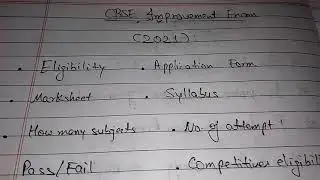 CBSE Improvement Exam
(2021)
• Eligibility • Application Form
• Marksheet • Syllabus
• How many subjects • No. of attempt
Pass/Fail • Competitive eligibil